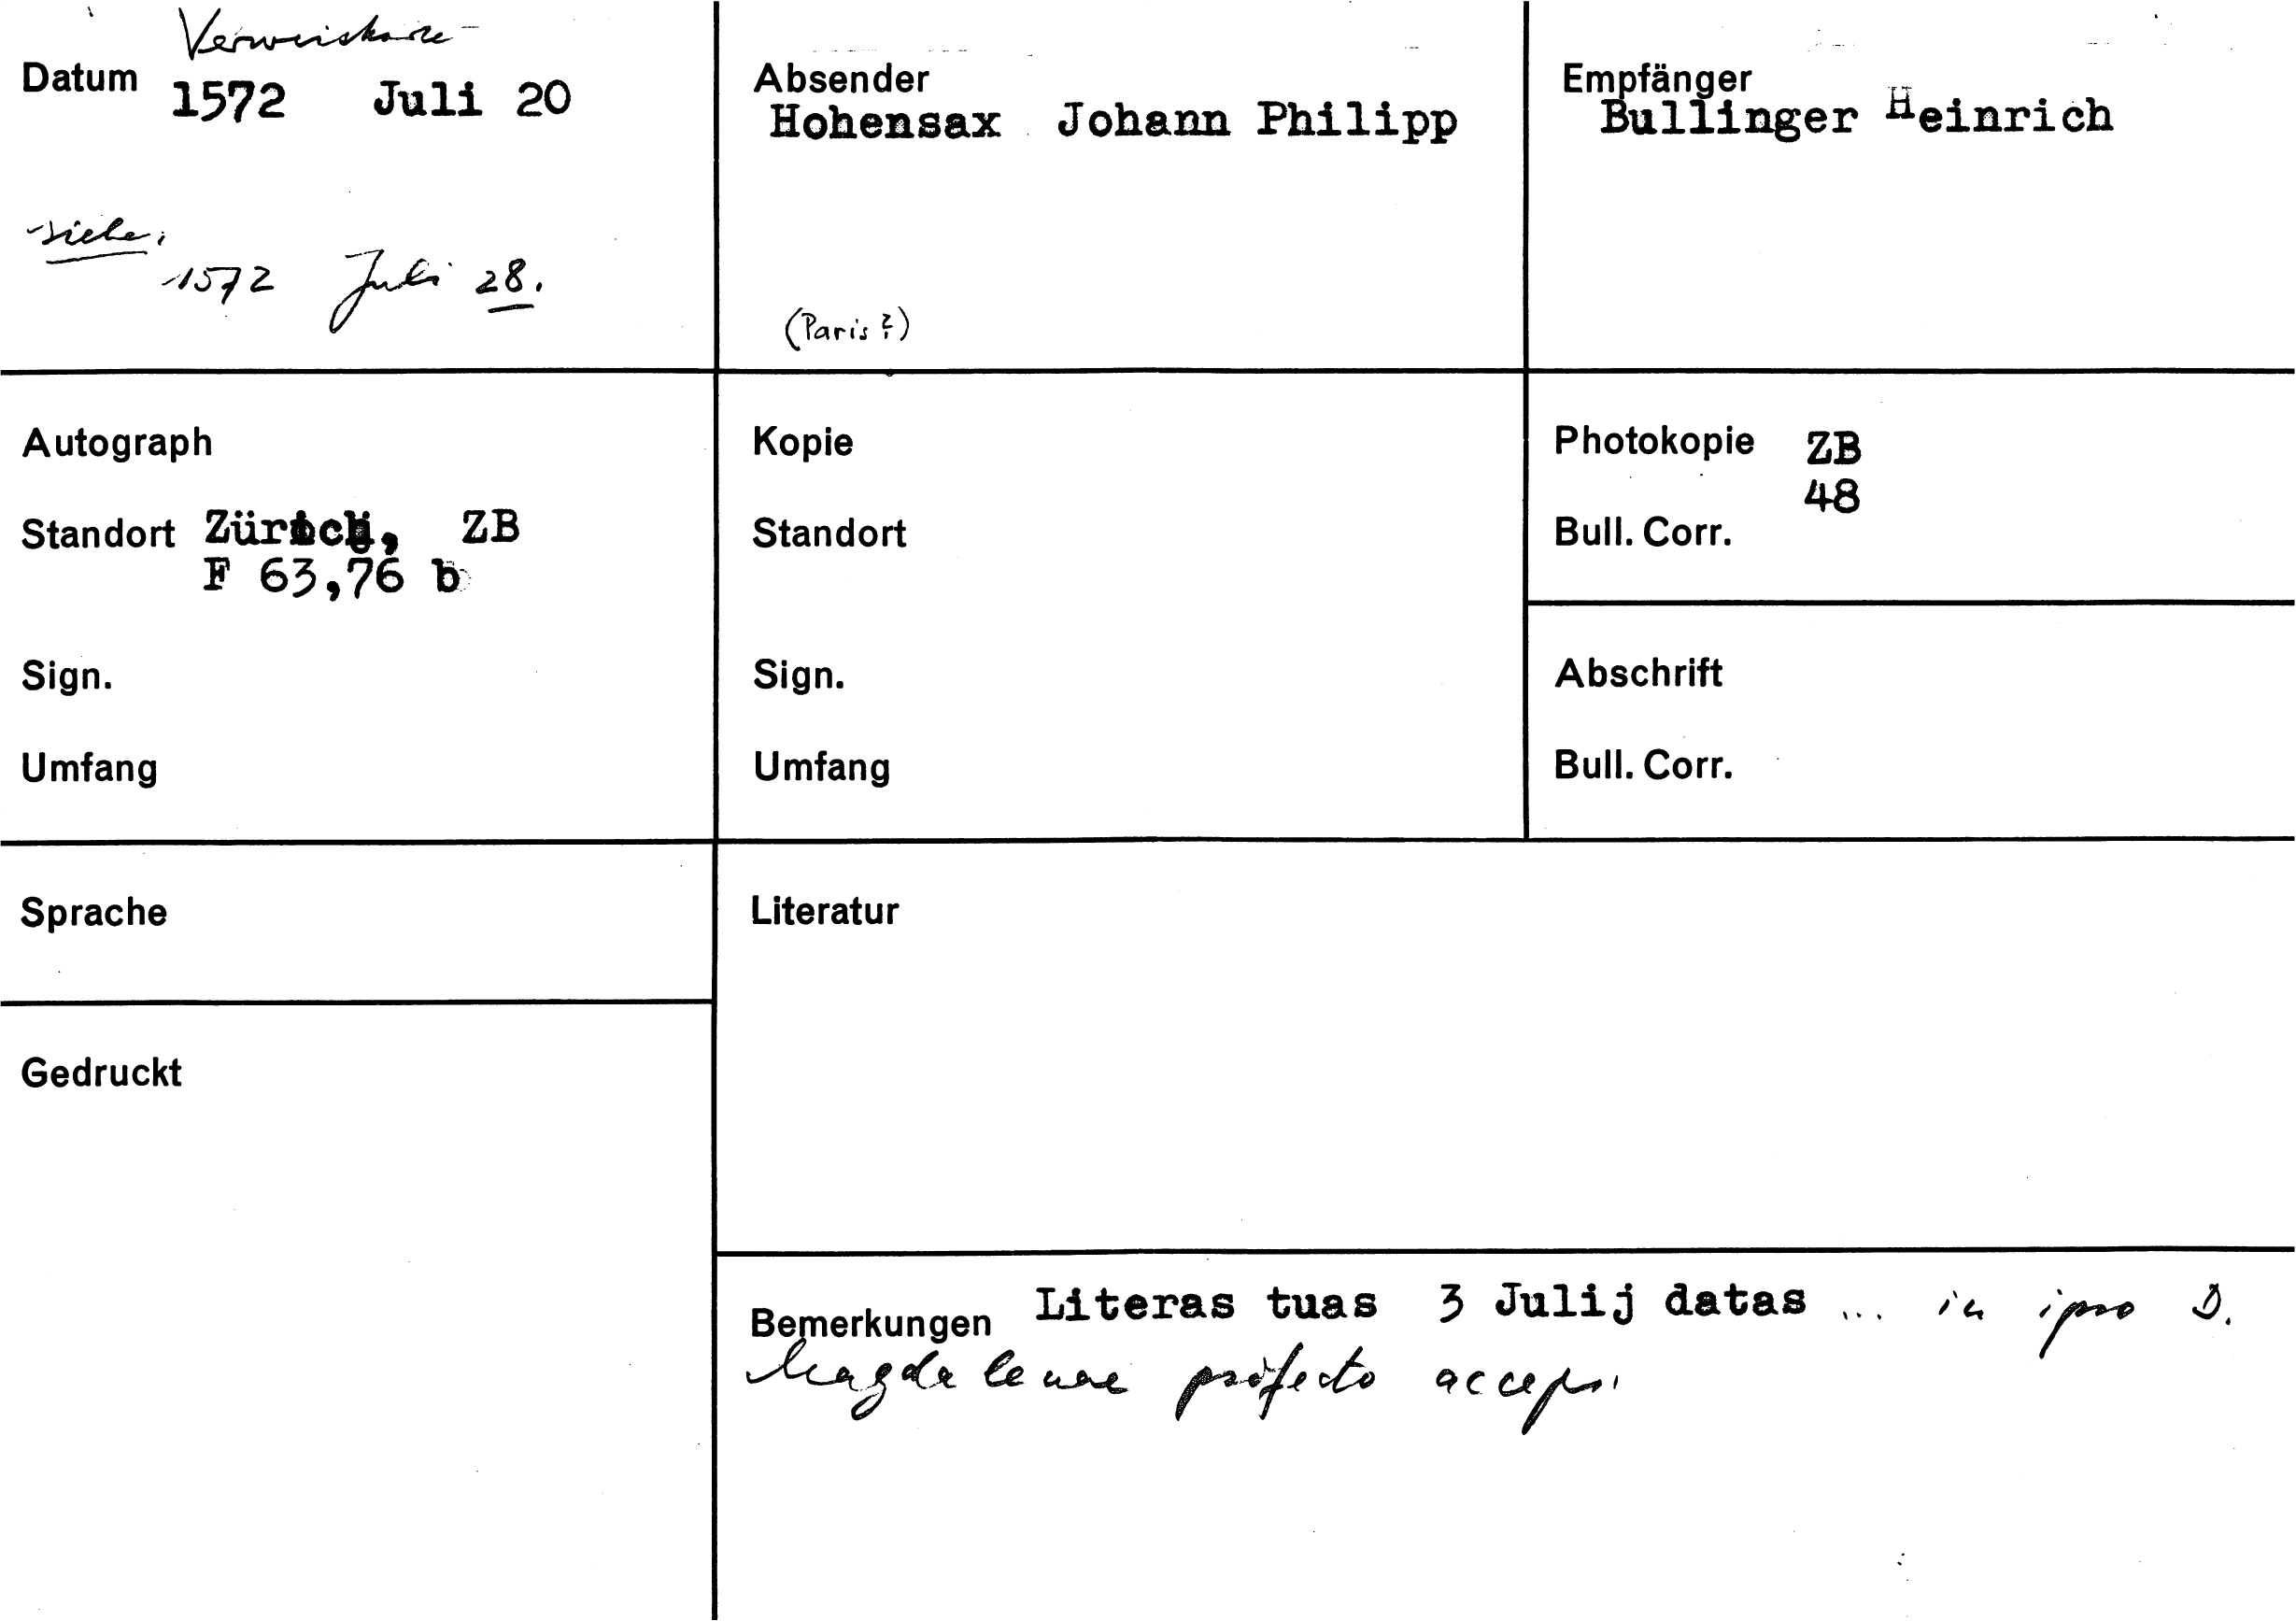 Verweiskarte
Datum 1572 Juli 20
siehe:
1572 Juli 28.
Absender
Hohensax Johann Philipp
(Paris?)
Empfänger
Bullinger Heinrich
Autograph
Standort Zürich, ZB
F 63,76 b
Sign.
Umfang
Kopie
Standort
Sign.
Umfang
Photokopie ZB
48
Bull. Corr.
Abschrift
Bull. Corr.
Sprache
Gedruckt
Literatur
Bemerkungen Literas tuas 3 Julij datas ... in ipso D.
Magdalenae profecto accepi